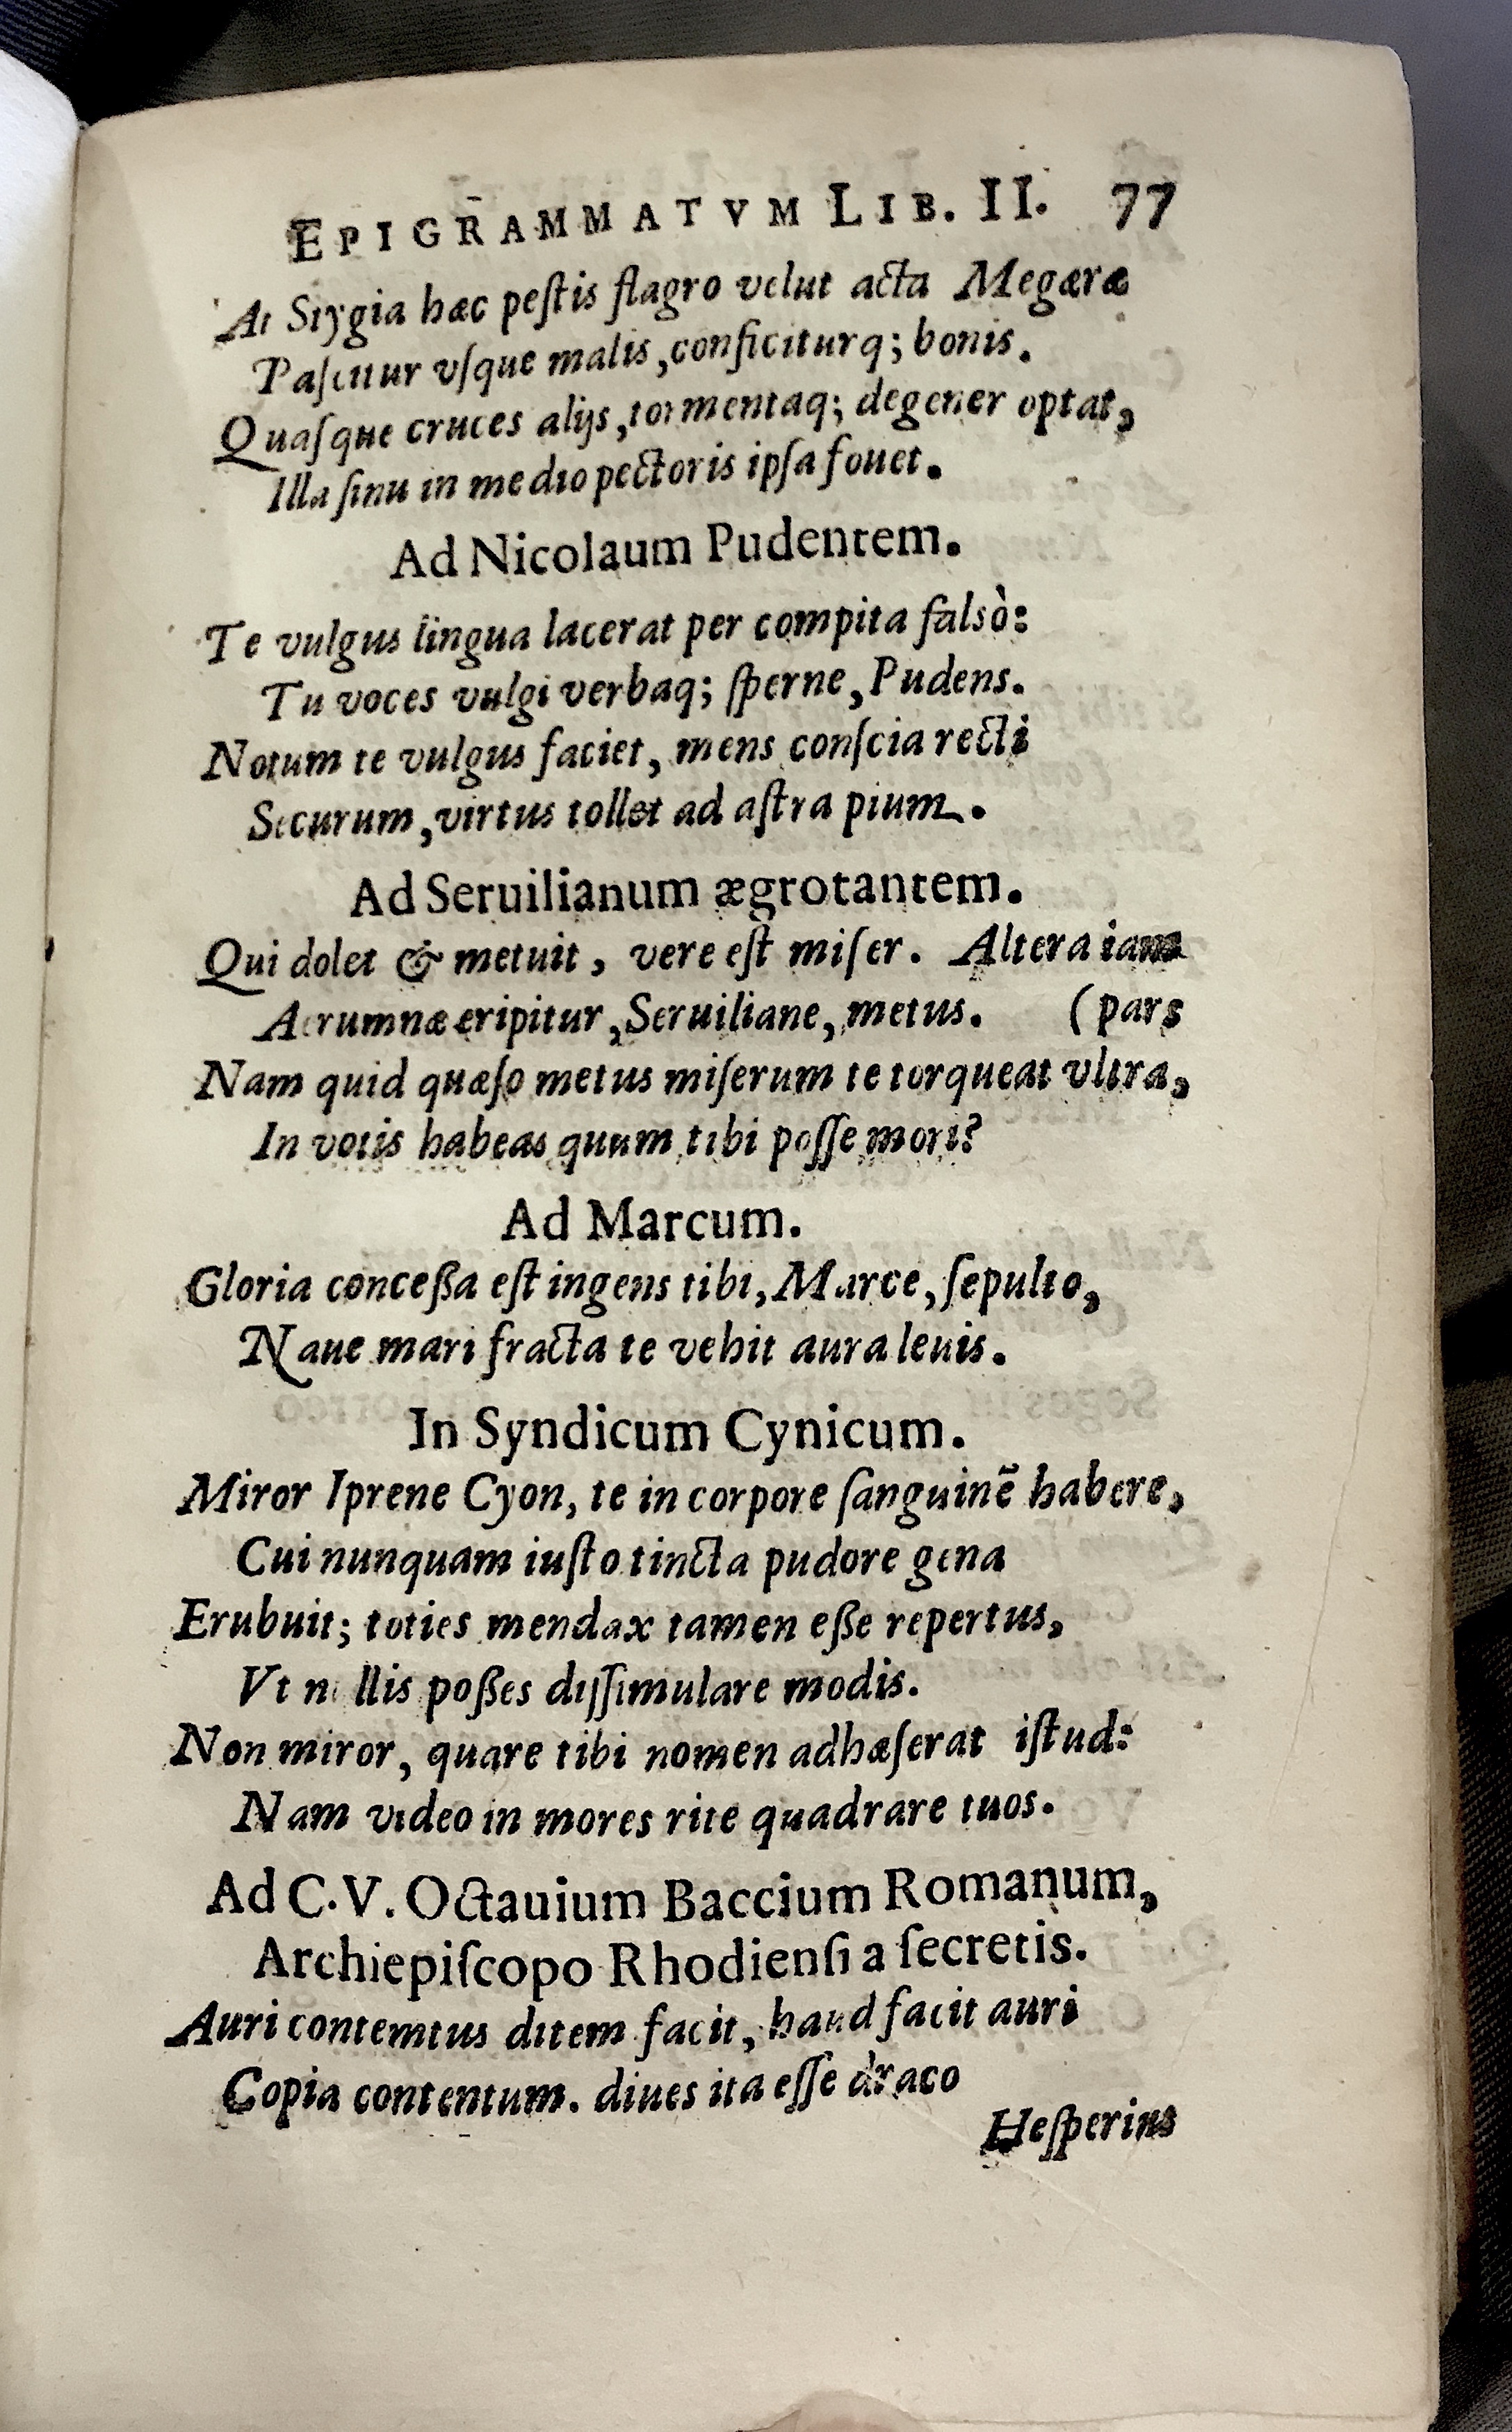 EPIGRAMMATVM LIB. II. 77
At Stygia hæc peſtis flagro velut acta Megæræ
Paſcitur vſque malis, conficiturq; bonis.
Quaſque cruces alijs, tormentaq; degener optat,
Illa ſinu in medio pectoris ipſa fouet.
Ad Nicolaum Pudentem.
Te vulgus lingua lacerat per compita falsò:
Tu voces vulgi verbaq; ſperne, Pudens.
Notum te vulgus faciet, mens conſcia recti
Securum, virtus tollet ad aſtra pium.
Ad Seruilianum ægrotantem.
Qui dolet & metuit, vere eſt miſer. Altera iam
Aerumnæ eripitur, Seruiliane, metus. (pars
Nam quid quæſo metus miſerum te torqueat vltra,
In votis habeas quum tibi poſſe mori?
Ad Marcum.
Gloria conceßa eſt ingens tibi, Marce, ſepulto,
Naue mari fracta te vehit aura leuis.
In Syndicum Cynicum.
Miror Iprene Cyon, te in corpore ſanguinẽ habere,
Cui nunquam iuſto tincta pudore gena
Erubuit; toties mendax tamen eße repertus,
Vt nullis poßes diſſimulare modis.
Non miror, quare tibi nomen adhæſerat iſtud:
Nam video in mores rite quadrare tuos.
Ad C.V. Octauium Baccium Romanum,
Archiepiſcopo Rhodienſi a ſecretis.
Auri contemtus ditem facit, haud facit auri
Copia contentum. diues ita eſſe draco
Heſperius